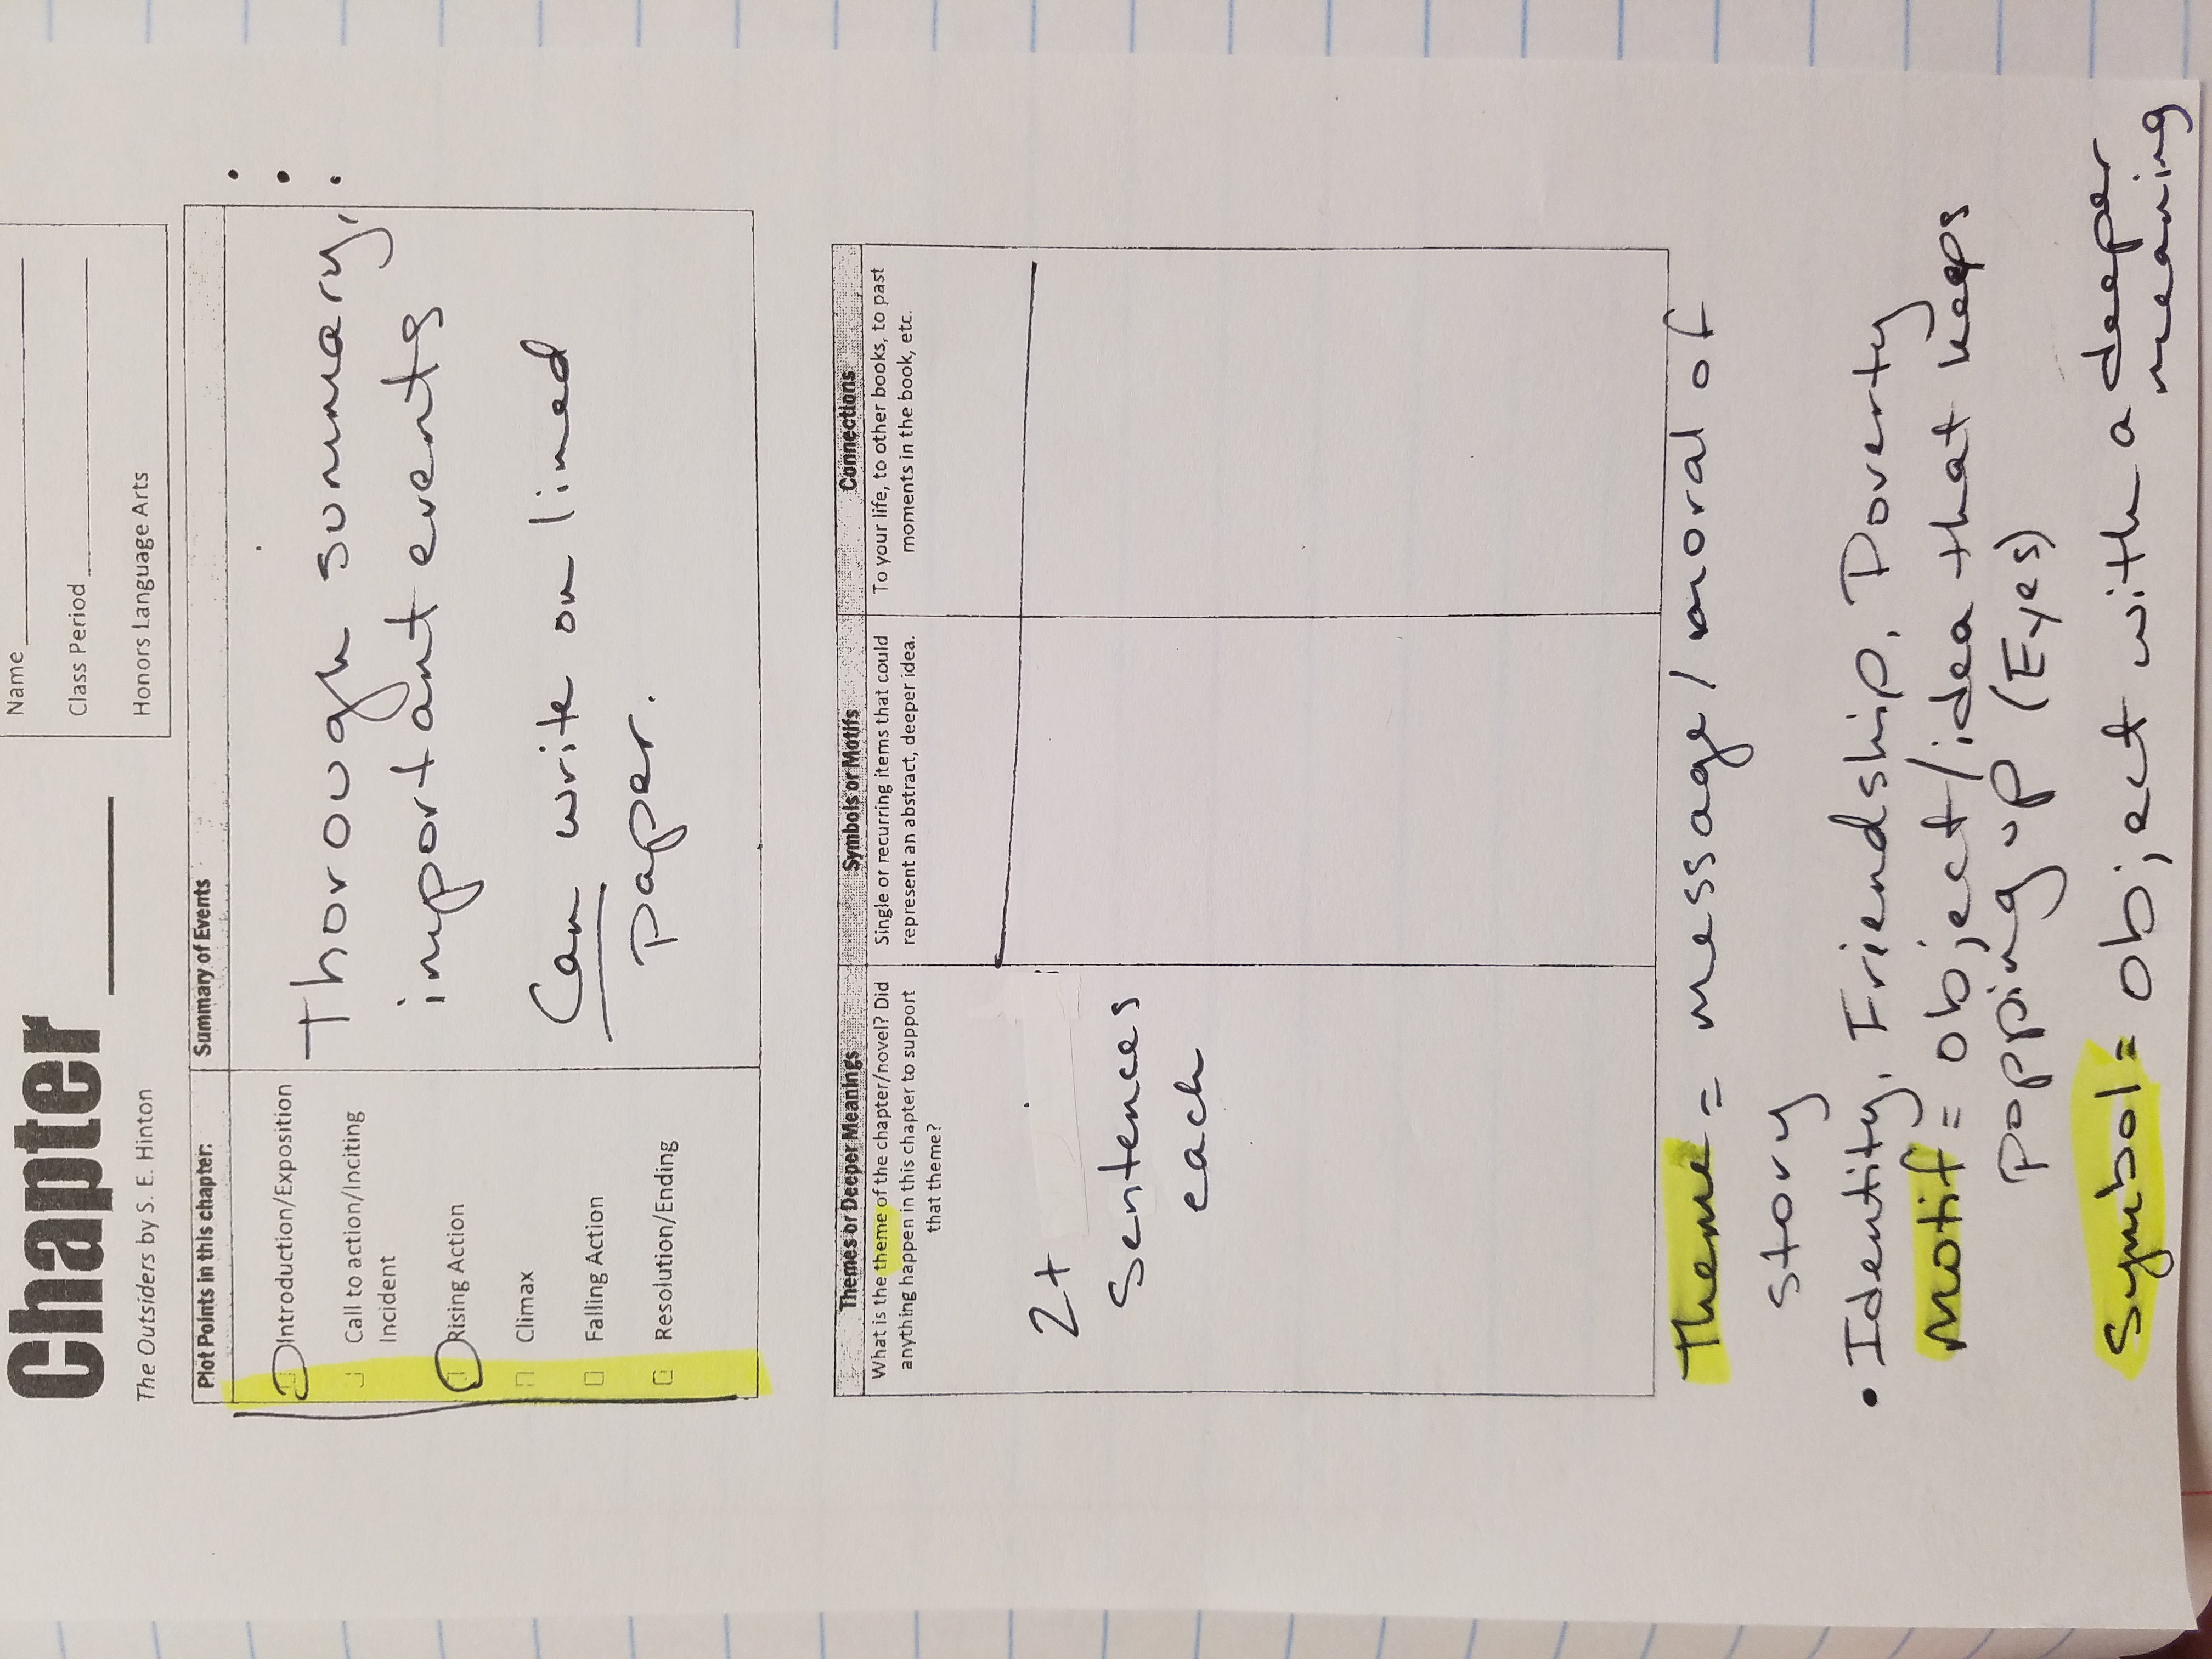 Name
Class Period
Honors Language Arts
Chapter
The Outsiders by S. E. Hinton
Plot Points in this chapter:
Introduction/Exposition
Call to action/Inciting
Incident
Rising Action
Climax
Falling Action
Resolution/Ending
Summary of Events
Thorough summary,
important events
Can write on lined
paper.
Themes or Deeper Meanings
What is the theme of the chapter/novel? Did
anything happen in this chapter to support
that theme?
2+
sentences
each
Symbols or Motifs
Single or recurring items that could
represent an abstract, deeper idea.
Connections
To your life, to other books, to past
moments in the book, etc.
Theme = message/moral of
story
• Identity, Friendship, Poverty
Motif = object/idea that keeps
popping up (Eyes)
Symbol = object with a deeper
meaning